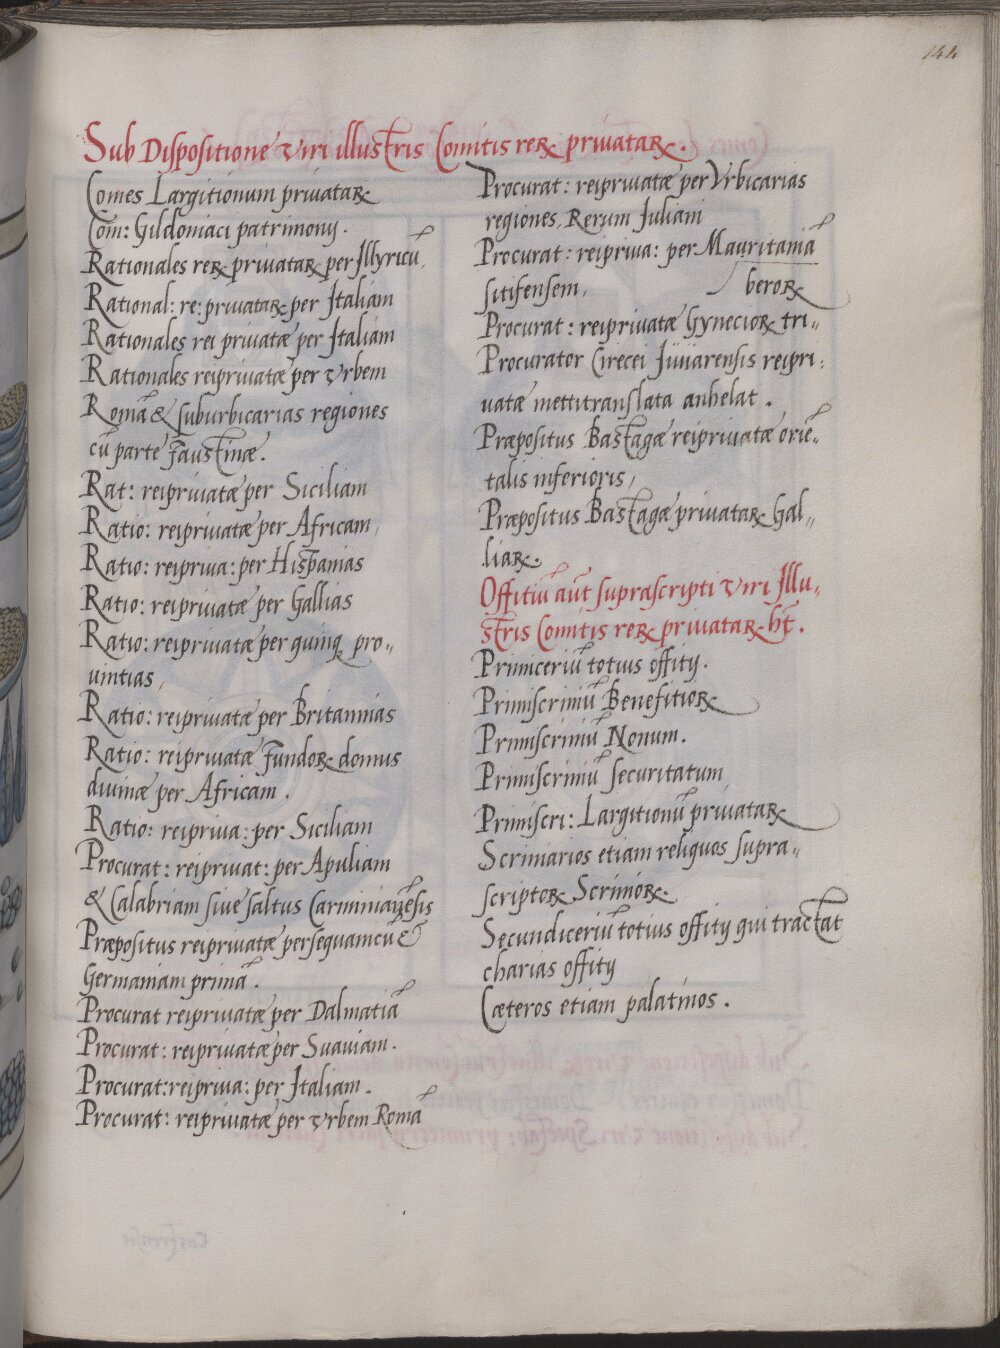 144
Sub Dispositione Viri illustris Comitis reꝝ priuataꝝ.
Comes Largitionum priuataꝝ
Com: Gildoniaci patrimonij.
Rationales reꝝ priuataꝝ per Illyricũ,
Rational: re: priuataꝝ per Italiam
Rationales rei priuatæ per Italiam
Rationales reipriuatæ per vrbem
Romã & suburbicarias regiones
cũ parte Faustinæ.
Rat: reipriuatæ per Siciliam
Ratio: reipriuatæ per Africam,
Ratio: reipriua: per Hispanias
Ratio: reipriuatæ per Gallias
Ratio: reipriuatæ per quinq pro„
uintias,
Ratio: reipriuatæ per Britannias
Ratio: reipriuatæ Fundoꝝ domus
diuinæ per Africam.
Ratio: reipriua: per Siciliam
Procurat: reipriuat: per Apuliam
& Calabriam siue saltus Carminianẽsis
Præpositus reipriuatæ persequamcũ &
Germaniam primã.
Procurat reipriuatæ per Dalmatiã
Procurat: reipriuatæ per Suauiam.
Procurat: reipriua: per Italiam.
Procurat: reipriuatæ per vrbem Romã
Procurat: reipriuatæ per Vrbicarias
regiones, Rerum Iuliani
Procurat: reipriua: per Mauritaniã
sitifensem, beroꝝ
Procurat: reipriuatæ Gynecioꝝ tri„
Procurator Cirecei Iuuarensis reipri:
uatæ mettitranslata anhelat.
Præpositus Bastagæ reipriuatæ oriẽ„
talis inferioris,
Præpositus Bastagæ priuataꝝ Gal„
liaꝝ.
Offitiũ aũt suprascripti viri Illu„
stris Comitis reꝝ priuataꝝ ht̃.
Primiceriũ totius offitij.
Primiscriniũ Benefitioꝝ
Primiscriniũ Nonum.
Primiscriniũ securitatum
Primiscri: Largitionũ priuataꝝ
Scriniarios etiam reliquos supra„
scriptoꝝ Scrinioꝝ.
Secundiceriũ totius offitij qui tractat
charias offitij
Cæteros etiam palatinos.